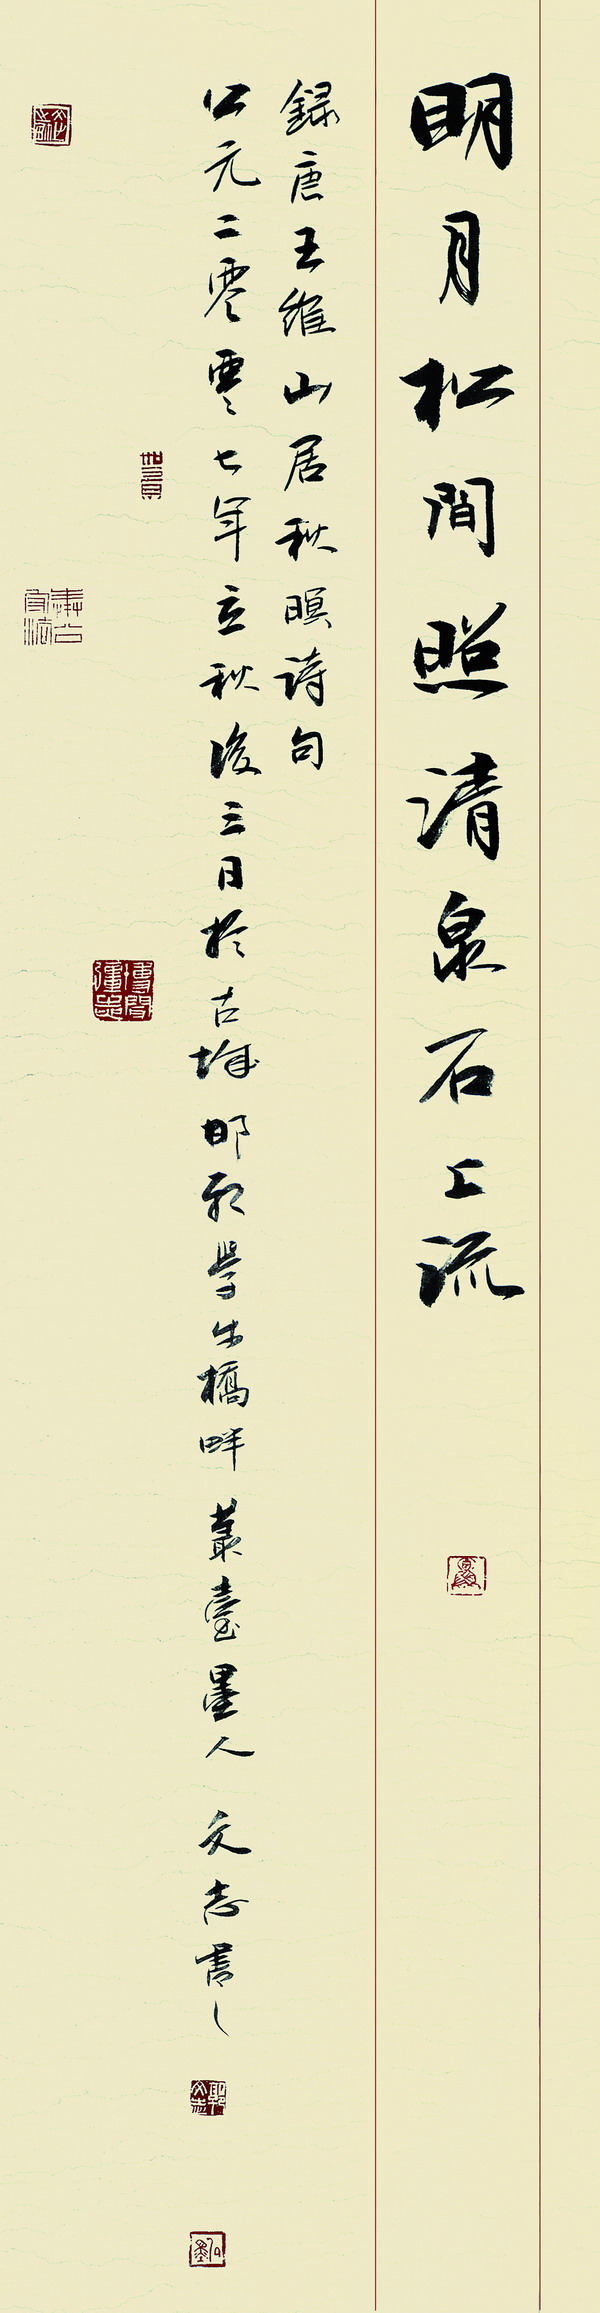 明月松間照清泉石上流
録唐王維山居秋暝詩句
公元二零零七年立秋後三日於古城邯鄲學步橋畔 叢臺墨人 文志書之